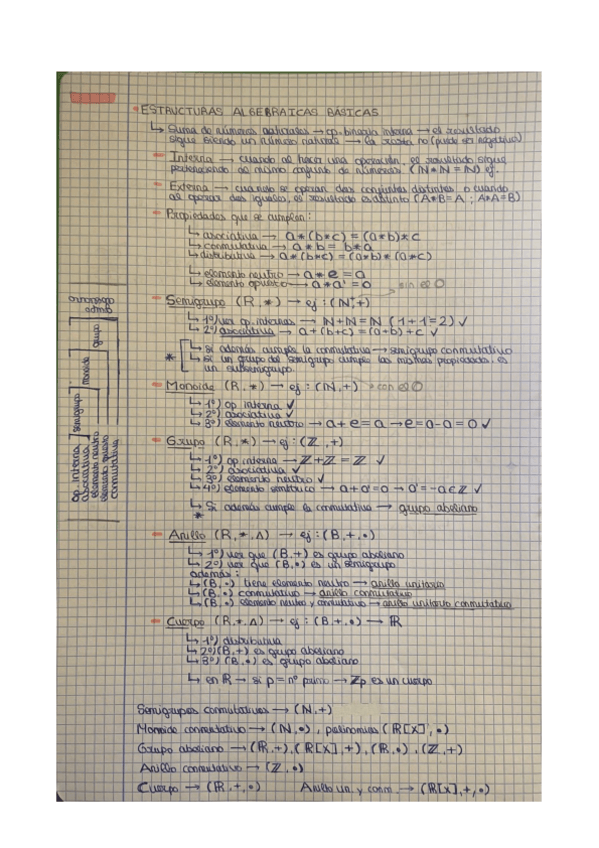 ESTRUCTURAS ALGEBRAICAS BÁSICAS
↳ Suma de números naturales → op. binaria interna → el resultado
sigue siendo un número natural → la resta no (puede ser negativo)
- Interna → cuando al hacer una operación, el resultado sigue
perteneciendo al mismo conjunto de números. (N * N = N) ej.
- Externa → cuando se operan dos conjuntos distintos o cuando
al operar dos iguales, el resultado es distinto (A*B=A ; A*A=B)
- Propiedades que se cumplen:
↳ asociativa → a*(b*c) = (a*b)*c
↳ conmutativa → a*b = b*a
↳ distributiva → a*(b*c) = (a*b)*(a*c)
↳ elemento neutro → a*e = a
↳ elemento opuesto → a*a' = 0
sin el 0
- Semigrupo (R,*) → ej: (N,+)
↳ 1º) ver op. internas → N+N=N (1+1=2) ✓
↳ 2º) asociativa → a+(b+c) = (a+b)+c ✓
* ↳ si además cumple la conmutativa → semigrupo conmutativo
↳ si un grupo del semigrupo cumple las mismas propiedades, es
un subsemigrupo.
- Monoide (R,*) → ej: (N,+) → con el 0
↳ 1º) op interna ✓
↳ 2º) asociativa ✓
↳ 3º) elemento neutro → a+e=a → e=a-a=0 ✓
- Grupo (R,*) → ej: (Z,+)
↳ 1º) op interna → Z+Z=Z ✓
↳ 2º) asociativa ✓
↳ 3º) elemento neutro ✓
↳ 4º) elemento simétrico → a+a'=0 → a'=-a∈Z ✓
↳ Si además cumple la conmutativa → grupo abeliano
*
- Anillo (R,*,Δ) → ej: (B,+,•)
↳ 1º) ver que (B,+) es grupo abeliano
↳ 2º) ver que (B,•) es un semigrupo
además:
↳ (B,•) tiene elemento neutro → anillo unitario
↳ (B,•) conmutativo → anillo conmutativo
↳ (B,•) elemento neutro y conmutativo → anillo unitario conmutativo
- Cuerpo (R,*,Δ) → ej: (B,+,•) → R
↳ 1º) distributiva
↳ 2º) (B,+) es grupo abeliano
↳ 3º) (B,•) es grupo abeliano
↳ en R → si p = nº primo → Zp es un cuerpo
Semigrupos conmutativos → (N,+)
Monoide conmutativo → (N,•), polinomios (R[x],•)
Grupo abeliano → (R,+),(R[x],+),(R,•),(Z,+)
Anillo conmutativo → (Z,•)
Cuerpo → (R,+,•) Anillo un. y conm. → (R[x],+,•)
op. interna
asociativa
elemento neutro
elemento opuesto
conmutativa
semigrupo
monoide
grupo
grupo
abeliano